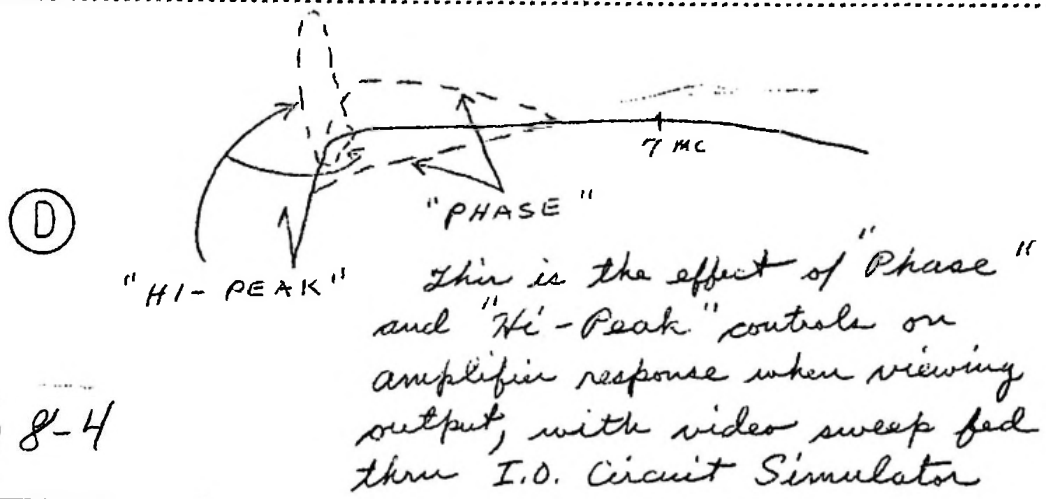 7 MC
D
"PHASE"
"HI-PEAK"
This is the effect of "Phase"
and "Hi-Peak" controls on
amplifier response when viewing
output, with video sweep fed
thru I.O. Circuit Simulator
8-4